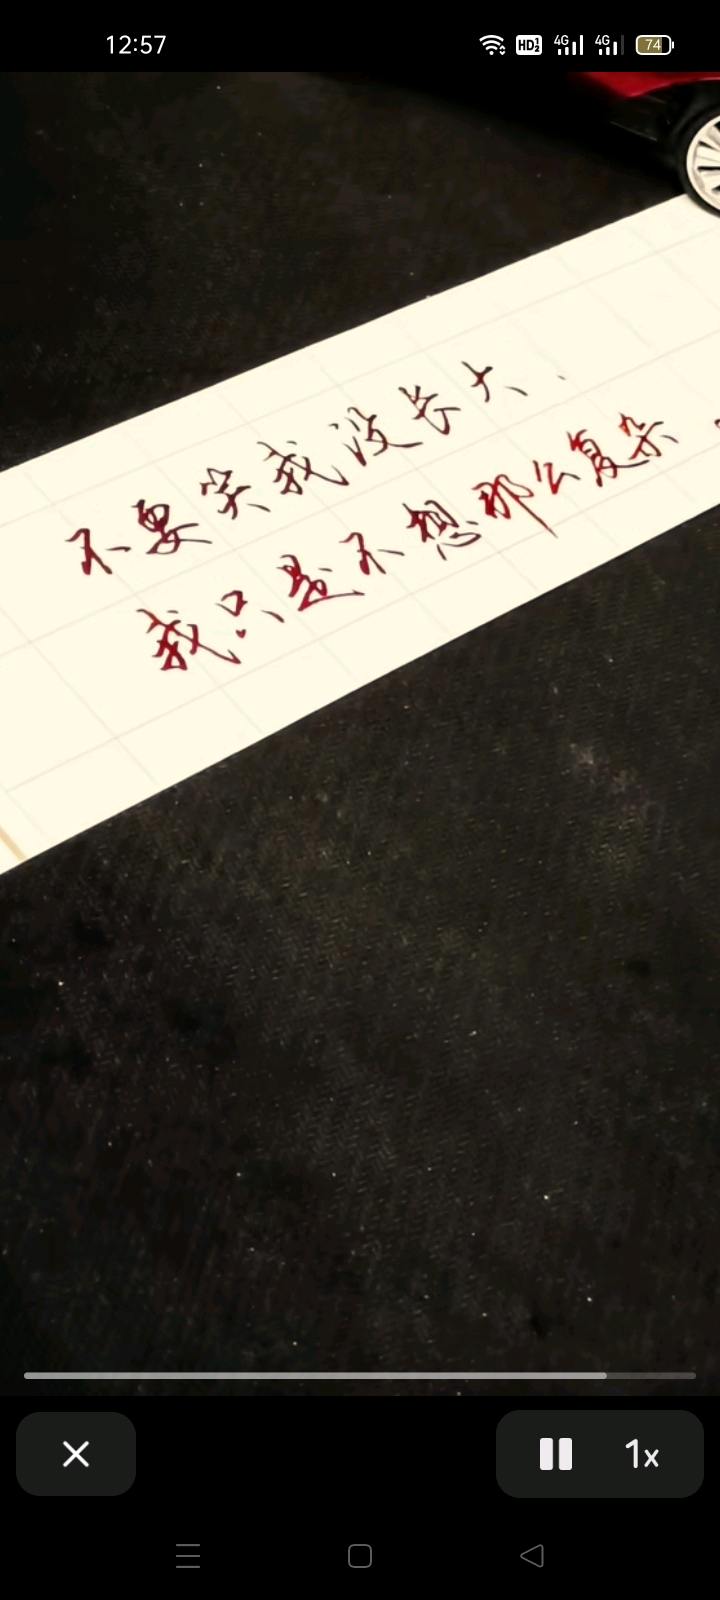 12:57
HD 1 2 4G 4G 74
不要笑我没长大、
我只是不想那么复杂
1x